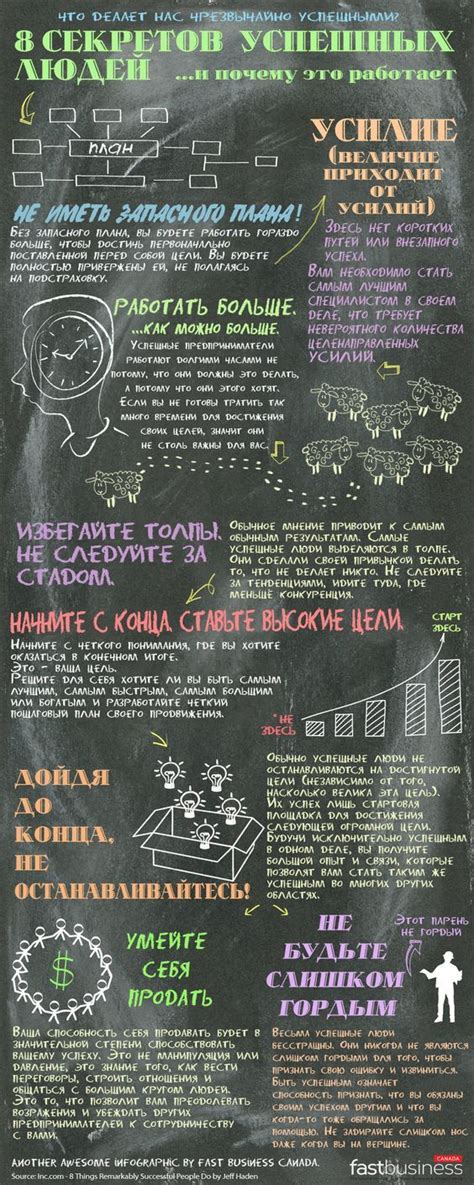 ЧТО ДЕЛАЕТ НАС ЧРЕЗВЫЧАЙНО УСПЕШНЫМИ?
8 СЕКРЕТОВ УСПЕШНЫХ
ЛЮДЕЙ ...И ПОЧЕМУ ЭТО РАБОТАЕТ
ПЛАН
НЕ ИМЕТЬ ЗАПАСНОГО ПЛАНА!
БЕЗ ЗАПАСНОГО ПЛАНА, ВЫ БУДЕТЕ РАБОТАТЬ ГОРАЗДО
БОЛЬШЕ, ЧТОБЫ ДОСТИЧЬ ПЕРВОНАЧАЛЬНО
ПОСТАВЛЕННОЙ ПЕРЕД СОБОЙ ЦЕЛИ. ВЫ БУДЕТЕ
ПОЛНОСТЬЮ ПРИВЕРЖЕНЫ ЕЙ, НЕ ПОЛАГАЯСЬ
НА ПОДСТРАХОВКУ.
УСИЛИЕ
(ВЕЛИЧИЕ
ПРИХОДИТ
ОТ
УСИЛИЙ)
ЗДЕСЬ НЕТ КОРОТКИХ
ПУТЕЙ ИЛИ ВНЕЗАПНОГО
УСПЕХА.
ВАМ НЕОБХОДИМО СТАТЬ
САМЫМ ЛУЧШИМ
СПЕЦИАЛИСТОМ В СВОЕМ
ДЕЛЕ, ЧТО ТРЕБУЕТ
НЕВЕРОЯТНОГО КОЛИЧЕСТВА
ЦЕЛЕНАПРАВЛЕННЫХ
УСИЛИЙ.
РАБОТАТЬ БОЛЬШЕ.
...КАК МОЖНО БОЛЬШЕ.
УСПЕШНЫЕ ПРЕДПРИНИМАТЕЛИ
РАБОТАЮТ ДОЛГИМИ ЧАСАМИ НЕ
ПОТОМУ, ЧТО ОНИ ДОЛЖНЫ ЭТО ДЕЛАТЬ,
А ПОТОМУ ЧТО ОНИ ЭТОГО ХОТЯТ.
ЕСЛИ ВЫ НЕ ГОТОВЫ ТРАТИТЬ ТАК
МНОГО ВРЕМЕНИ ДЛЯ ДОСТИЖЕНИЯ
СВОИХ ЦЕЛЕЙ, ЗНАЧИТ ОНИ
НЕ СТОЛЬ ВАЖНЫ ДЛЯ ВАС.
ИЗБЕГАЙТЕ ТОЛПЫ.
НЕ СЛЕДУЙТЕ ЗА
СТАДОМ.
ОБЫЧНОЕ МНЕНИЕ ПРИВОДИТ К САМЫМ
ОБЫЧНЫМ РЕЗУЛЬТАТАМ. САМЫЕ
УСПЕШНЫЕ ЛЮДИ ВЫДЕЛЯЮТСЯ В ТОЛПЕ.
ОНИ СДЕЛАЛИ СВОЕЙ ПРИВЫЧКОЙ ДЕЛАТЬ
ТО, ЧТО НЕ ДЕЛАЕТ НИКТО. НЕ СЛЕДУЙТЕ
ЗА ТЕНДЕНЦИЯМИ, ИДИТЕ ТУДА, ГДЕ
МЕНЬШЕ КОНКУРЕНЦИЯ.
НАЧНИТЕ С КОНЦА. СТАВЬТЕ ВЫСОКИЕ ЦЕЛИ.
НАЧНИТЕ С ЧЕТКОГО ПОНИМАНИЯ, ГДЕ ВЫ ХОТИТЕ
ОКАЗАТЬСЯ В КОНЕЧНОМ ИТОГЕ.
ЭТО - ВАША ЦЕЛЬ.
РЕШИТЕ ДЛЯ СЕБЯ ХОТИТЕ ЛИ ВЫ БЫТЬ САМЫМ
ЛУЧШИМ, САМЫМ БЫСТРЫМ, САМЫМ БОЛЬШИМ
ИЛИ БОГАТЫМ И РАЗРАБОТАЙТЕ ЧЕТКИЙ
ПОШАГОВЫЙ ПЛАН СВОЕГО ПРОДВИЖЕНИЯ.
СТАРТ
ЗДЕСЬ
*НЕ
ЗДЕСЬ
ДОЙДЯ
ДО
КОНЦА,
НЕ
ОСТАНАВЛИВАЙТЕСЬ!
ОБЫЧНО УСПЕШНЫЕ ЛЮДИ НЕ
ОСТАНАВЛИВАЮТСЯ НА ДОСТИГНУТОЙ
ЦЕЛИ (НЕЗАВИСИМО ОТ ТОГО,
НАСКОЛЬКО ВЕЛИКА ЭТА ЦЕЛЬ).
ИХ УСПЕХ ЛИШЬ СТАРТОВАЯ
ПЛОЩАДКА ДЛЯ ДОСТИЖЕНИЯ
СЛЕДУЮЩЕЙ ОГРОМНОЙ ЦЕЛИ.
БУДУЧИ ИСКЛЮЧИТЕЛЬНО УСПЕШНЫМ
В ОДНОМ ДЕЛЕ, ВЫ ПОЛУЧИТЕ
БОЛЬШОЙ ОПЫТ И СВЯЗИ, КОТОРЫЕ
ПОЗВОЛЯТ ВАМ СТАТЬ ТАКИМ ЖЕ
УСПЕШНЫМ ВО МНОГИХ ДРУГИХ
ОБЛАСТЯХ.
$
УМЕЙТЕ
СЕБЯ
ПРОДАТЬ
ВАША СПОСОБНОСТЬ СЕБЯ ПРОДАВАТЬ БУДЕТ В
ЗНАЧИТЕЛЬНОЙ СТЕПЕНИ СПОСОБСТВОВАТЬ
ВАШЕМУ УСПЕХУ. ЭТО НЕ МАНИПУЛЯЦИЯ ИЛИ
ДАВЛЕНИЕ, ЭТО ЗНАНИЕ ТОГО, КАК ВЕСТИ
ПЕРЕГОВОРЫ, СТРОИТЬ ОТНОШЕНИЯ И
ОБЩАТЬСЯ С БОЛЬШИМ КРУГОМ ЛЮДЕЙ.
ЭТО ТО, ЧТО ПОЗВОЛИТ ВАМ ПРЕОДОЛЕВАТЬ
ВОЗРАЖЕНИЯ И УБЕЖДАТЬ ДРУГИХ
ПРЕДПРИНИМАТЕЛЕЙ К СОТРУДНИЧЕСТВУ
С ВАМИ.
НЕ
БУДЬТЕ
СЛИШКОМ
ГОРДЫМ
ЭТОТ ПАРЕНЬ
НЕ ГОРДЫЙ
ВЕСЬМА УСПЕШНЫЕ ЛЮДИ
БЕССТРАШНЫ. ОНИ НИКОГДА НЕ ЯВЛЯЮТСЯ
СЛИШКОМ ГОРДЫМИ ДЛЯ ТОГО, ЧТОБЫ
ПРИЗНАТЬ СВОЮ ОШИБКУ И ИЗВИНИТЬСЯ.
БЫТЬ УСПЕШНЫМ ОЗНАЧАЕТ
СПОСОБНОСТЬ ПРИЗНАТЬ, ЧТО ВЫ ОБЯЗАНЫ
СВОИМ УСПЕХОМ ДРУГИМ И ЧТО ВЫ
КОГДА-ТО ТОЖЕ ОБРАЩАЛИСЬ ЗА
ПОМОЩЬЮ. НЕ ЗАДИРАЙТЕ СЛИШКОМ НОС
ДАЖЕ КОГДА ВЫ НА ВЕРШИНЕ.
ANOTHER AWESOME INFOGRAPHIC BY FAST BUSINESS CANADA.
Source: Inc.com - 8 Things Remarkably Successful People Do by Jeff Haden
CANADA
fastbusiness